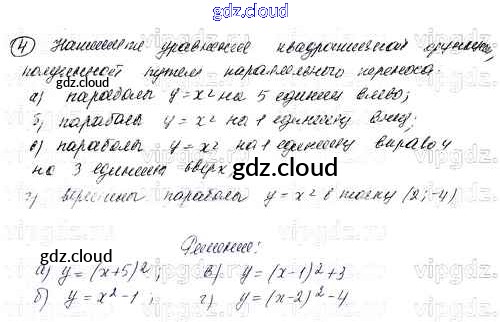 gdz.cloud
④ Напишите уравнение квадратичной функции,
полученной путем параллельного переноса:
gdz.cloud
а) параболы y=x² на 5 единиц влево;
б) параболы y=x² на 1 единицу вниз;
в) параболы y=x² на 1 единицу вправо и
на 3 единицы вверх;
gdz.cloud
г) вершины параболы y=x² в точку (2;-4)
gdz.cloud
Решение:
а) y=(x+5)²; в) y=(x-1)²+3
б) y=x²-1; г) y=(x-2)²-4